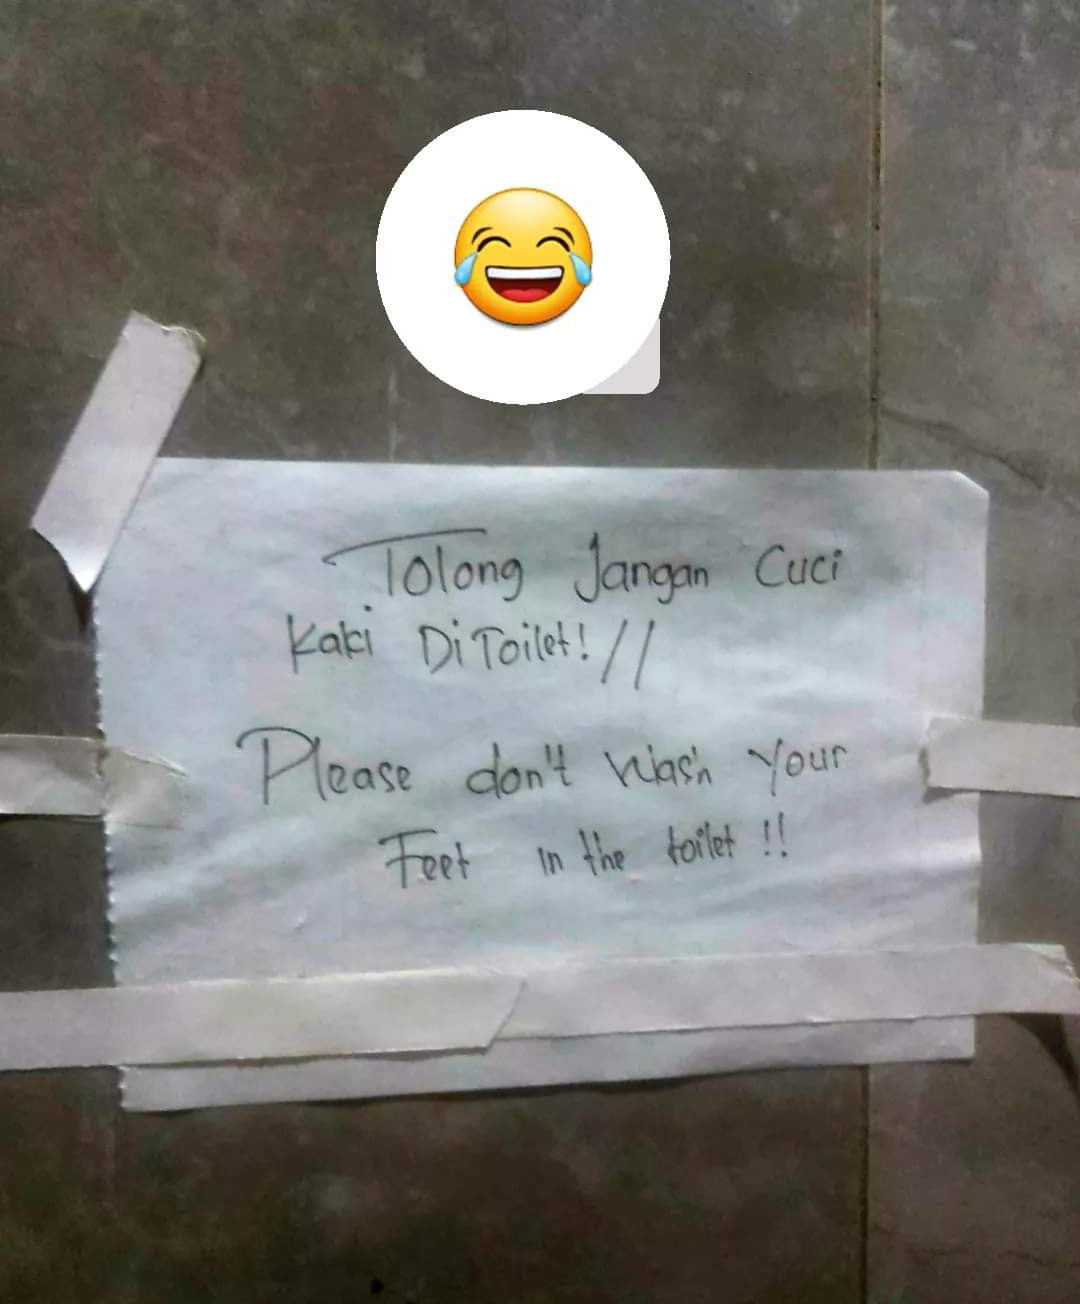 Tolong Jangan Cuci
Kaki Di Toilet! //
Please don't wash your
Feet in the toilet !!